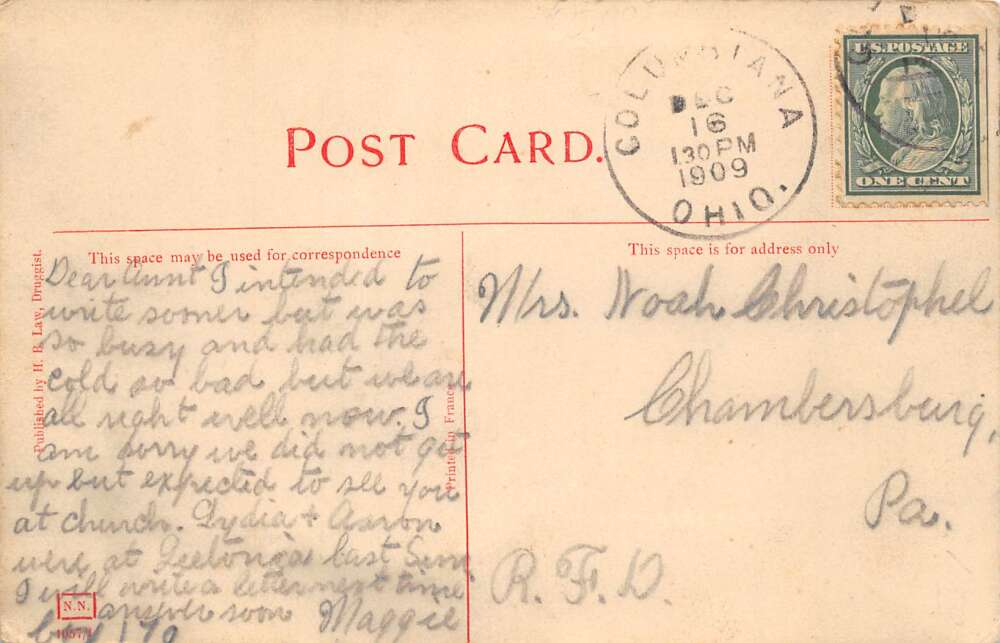 POST CARD.
COLUMBIANA
DEC
16
1 30 PM
1909
OHIO.
U.S. POSTAGE
ONE CENT
This space may be used for correspondence
This space is for address only
Published by H. B. Law, Druggist.
Printed in France
Dear Aunt I intended to
write sooner but was
so busy and had the
cold so bad but we are
all right well now. I
am sorry we did not get
up but expected to see you
at church. Lydia + Aaron
were at Leetonia last Sun
I will write a letter next time
answer soon Maggie
Mrs. Noah Christophel
Chambersburg,
Pa.
R. F. D.
N.N.